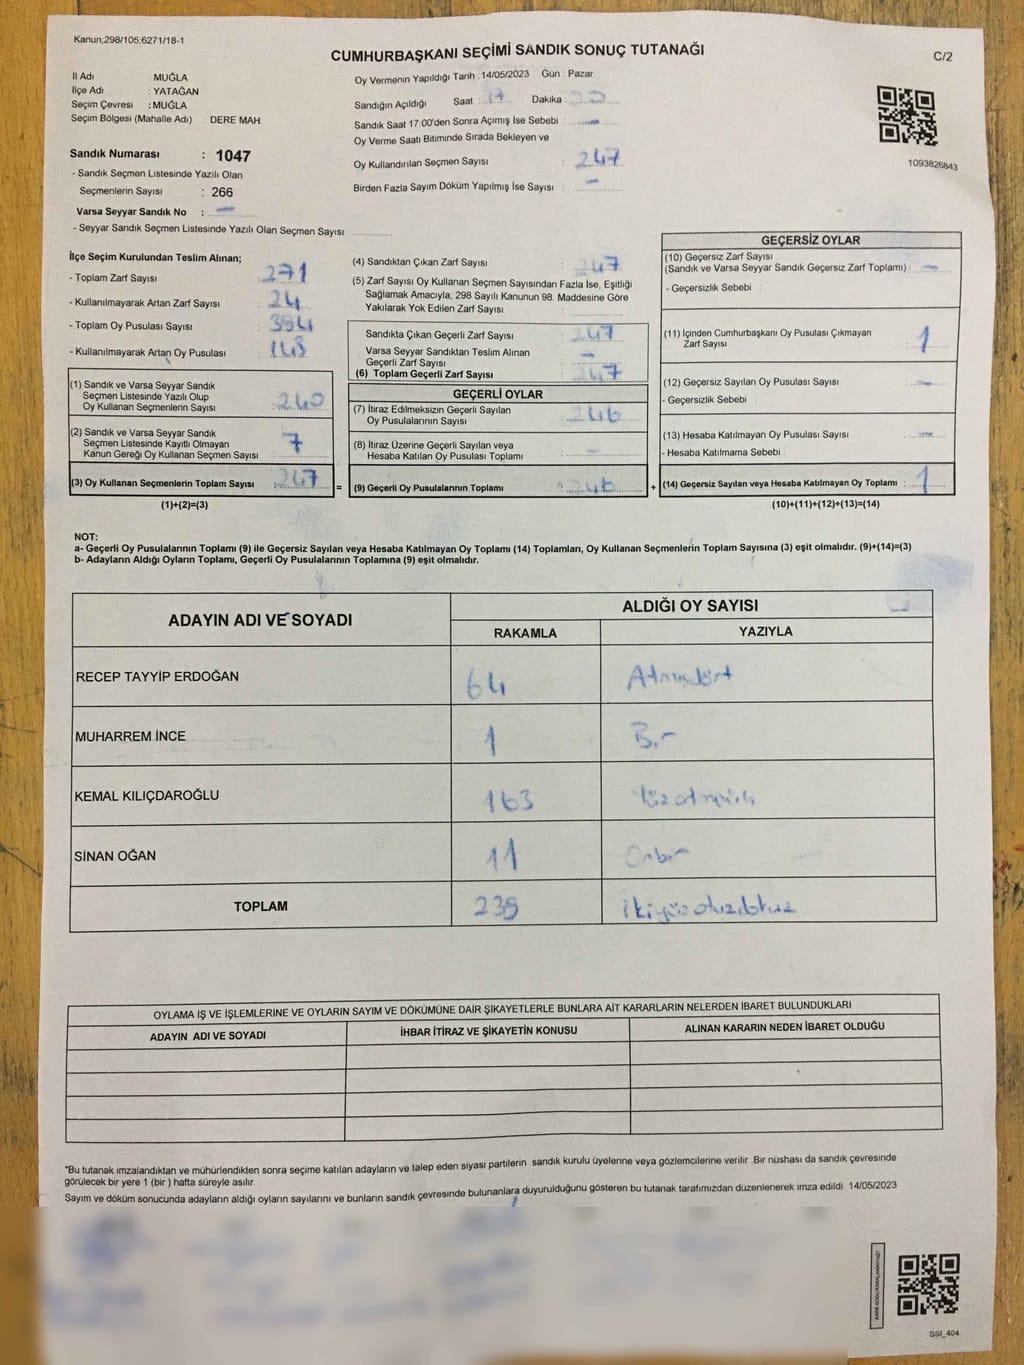 Kanun;298/105;6271/18-1
CUMHURBAŞKANI SEÇİMİ SANDIK SONUÇ TUTANAĞI
C/2
İl Adı : MUĞLA
İlçe Adı : YATAĞAN
Seçim Çevresi : MUĞLA
Seçim Bölgesi (Mahalle Adı) : DERE MAH.
Sandık Numarası : 1047
- Sandık Seçmen Listesinde Yazılı Olan
Seçmenlerin Sayısı : 266
Varsa Seyyar Sandık No : -
- Seyyar Sandık Seçmen Listesinde Yazılı Olan Seçmen Sayısı
Oy Vermenin Yapıldığı Tarih : 14/05/2023 Gün : Pazar
Sandığın Açıldığı Saat : 17 Dakika :
Sandık Saat 17:00'den Sonra Açımış İse Sebebi : -
Oy Verme Saati Bitiminde Sırada Bekleyen ve
Oy Kullandırılan Seçmen Sayısı : 247
Birden Fazla Sayım Döküm Yapılmış İse Sayısı : -
1093826843
İlçe Seçim Kurulundan Teslim Alınan;
- Toplam Zarf Sayısı : 271
- Kullanılmayarak Artan Zarf Sayısı : 24
- Toplam Oy Pusulası Sayısı :
- Kullanılmayarak Artan Oy Pusulası : 143
(1) Sandık ve Varsa Seyyar Sandık
Seçmen Listesinde Yazılı Olup
Oy Kullanan Seçmenlerin Sayısı : 240
(2) Sandık ve Varsa Seyyar Sandık
Seçmen Listesinde Kayıtlı Olmayan
Kanun Gereği Oy Kullanan Seçmen Sayısı : 7
(3) Oy Kullanan Seçmenlerin Toplam Sayısı : 247
(1)+(2)=(3)
(4) Sandıktan Çıkan Zarf Sayısı : 247
(5) Zarf Sayısı Oy Kullanan Seçmen Sayısından Fazla İse, Eşitliği
Sağlamak Amacıyla, 298 Sayılı Kanunun 98. Maddesine Göre
Yakılarak Yok Edilen Zarf Sayısı :
Sandıkta Çıkan Geçerli Zarf Sayısı : 247
Varsa Seyyar Sandıktan Teslim Alınan
Geçerli Zarf Sayısı : -
(6) Toplam Geçerli Zarf Sayısı : 247
GEÇERLİ OYLAR
(7) İtiraz Edilmeksizin Geçerli Sayılan
Oy Pusulalarının Sayısı : 246
(8) İtiraz Üzerine Geçerli Sayılan veya
Hesaba Katılan Oy Pusulası Toplamı : -
= (9) Geçerli Oy Pusulalarının Toplamı : 246
GEÇERSİZ OYLAR
(10) Geçersiz Zarf Sayısı
(Sandık ve Varsa Seyyar Sandık Geçersiz Zarf Toplamı) : -
- Geçersizlik Sebebi :
(11) İçinden Cumhurbaşkanı Oy Pusulası Çıkmayan
Zarf Sayısı : 1
(12) Geçersiz Sayılan Oy Pusulası Sayısı : -
- Geçersizlik Sebebi :
(13) Hesaba Katılmayan Oy Pusulası Sayısı : -
- Hesaba Katılmama Sebebi :
+ (14) Geçersiz Sayılan veya Hesaba Katılmayan Oy Toplamı : 1
(10)+(11)+(12)+(13)=(14)
NOT:
a- Geçerli Oy Pusulalarının Toplamı (9) ile Geçersiz Sayılan veya Hesaba Katılmayan Oy Toplamı (14) Toplamları, Oy Kullanan Seçmenlerin Toplam Sayısına (3) eşit olmalıdır. (9)+(14)=(3)
b- Adayların Aldığı Oyların Toplamı, Geçerli Oy Pusulalarının Toplamına (9) eşit olmalıdır.
ADAYIN ADI VE SOYADI
ALDIĞI OY SAYISI
RAKAMLA YAZIYLA
RECEP TAYYİP ERDOĞAN 64 Atmışdört
MUHARREM İNCE 1 Bir
KEMAL KILIÇDAROĞLU 163
SİNAN OĞAN 11 Onbir
TOPLAM 239 İkiyüzotuzdokuz
OYLAMA İŞ VE İŞLEMLERİNE VE OYLARIN SAYIM VE DÖKÜMÜNE DAİR ŞİKAYETLERLE BUNLARA AİT KARARLARIN NELERDEN İBARET BULUNDUKLARI
ADAYIN ADI VE SOYADI İHBAR İTİRAZ VE ŞİKAYETİN KONUSU ALINAN KARARIN NEDEN İBARET OLDUĞU
*Bu tutanak imzalandıktan ve mühürlendikten sonra seçime katılan adayların ve talep eden siyası partilerin sandık kurulu üyelerine veya gözlemcilerine verilir. Bir nüshası da sandık çevresinde
görülecek bir yere 1 (bir ) hafta süreyle asılır.
Sayım ve döküm sonucunda adayların aldığı oyların sayılarını ve bunların sandık çevresinde bulunanlara duyurulduğunu gösteren bu tutanak tarafımızdan düzenlenerek imza edildi. 14/05/2023
SSI_404